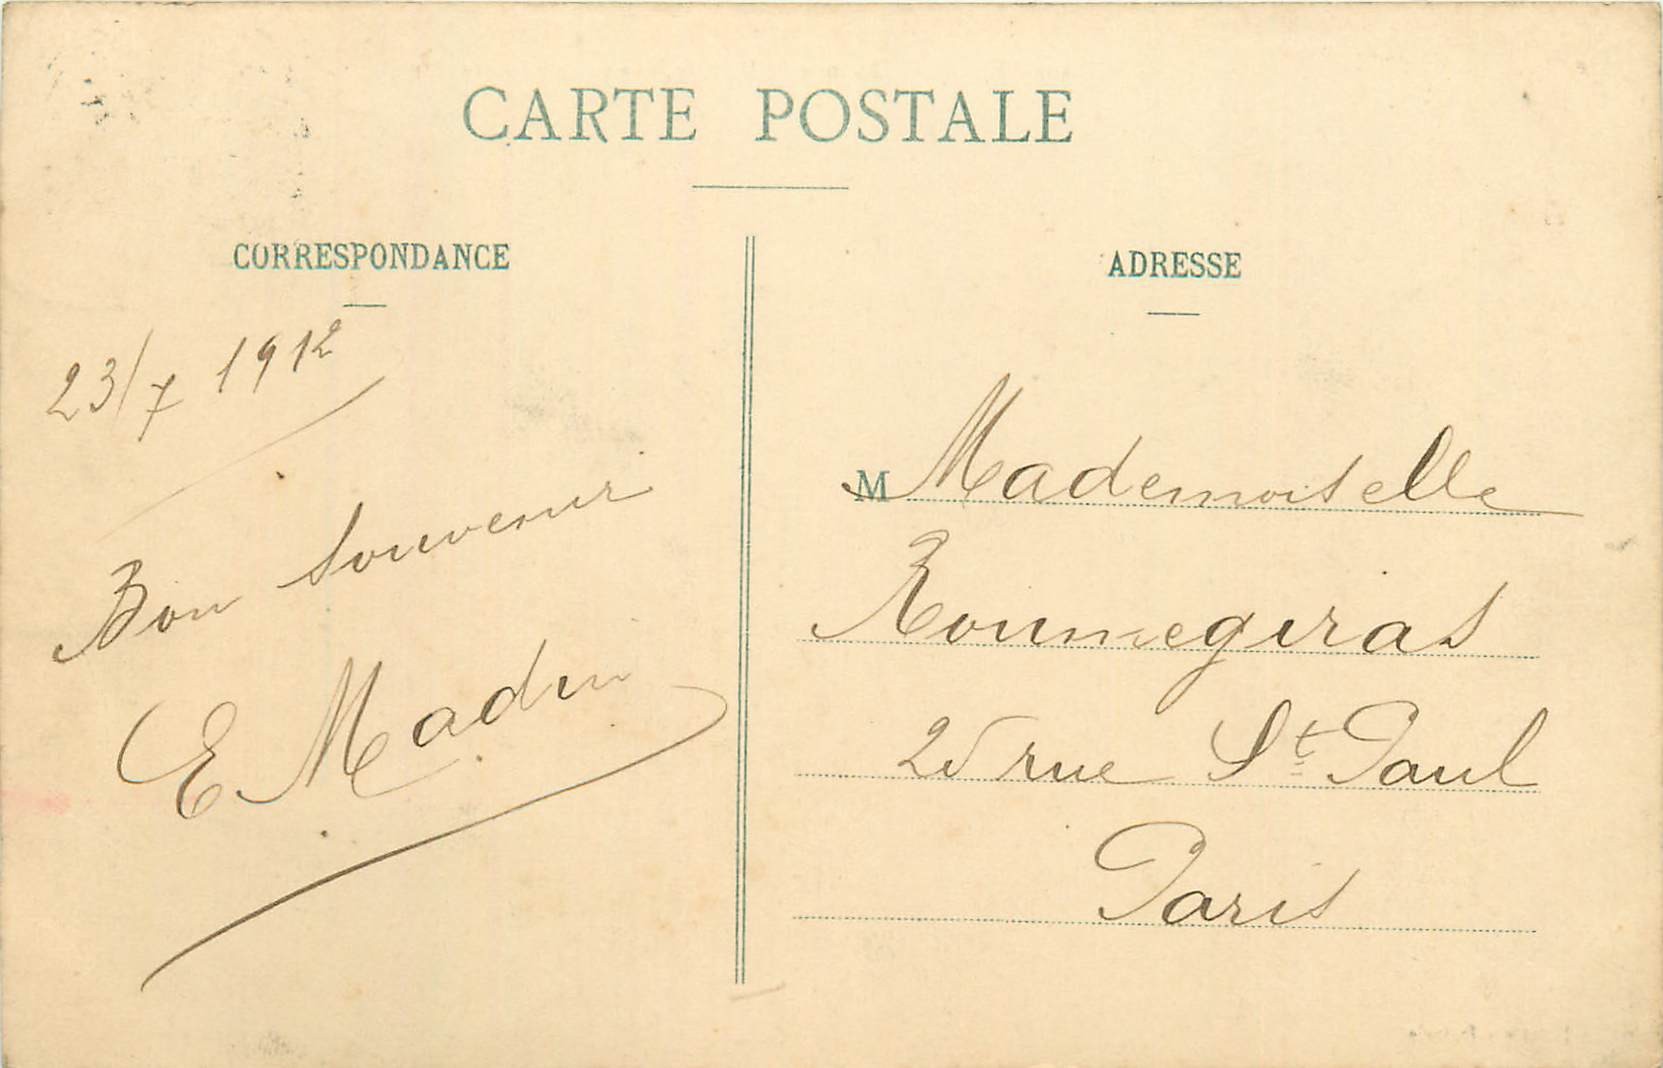 CARTE POSTALE
CORRESPONDANCE
23/7 1912
Bon Souvenir
E Madin
ADRESSE
M Mademoiselle
Roumegiras
25 rue St Paul
Paris